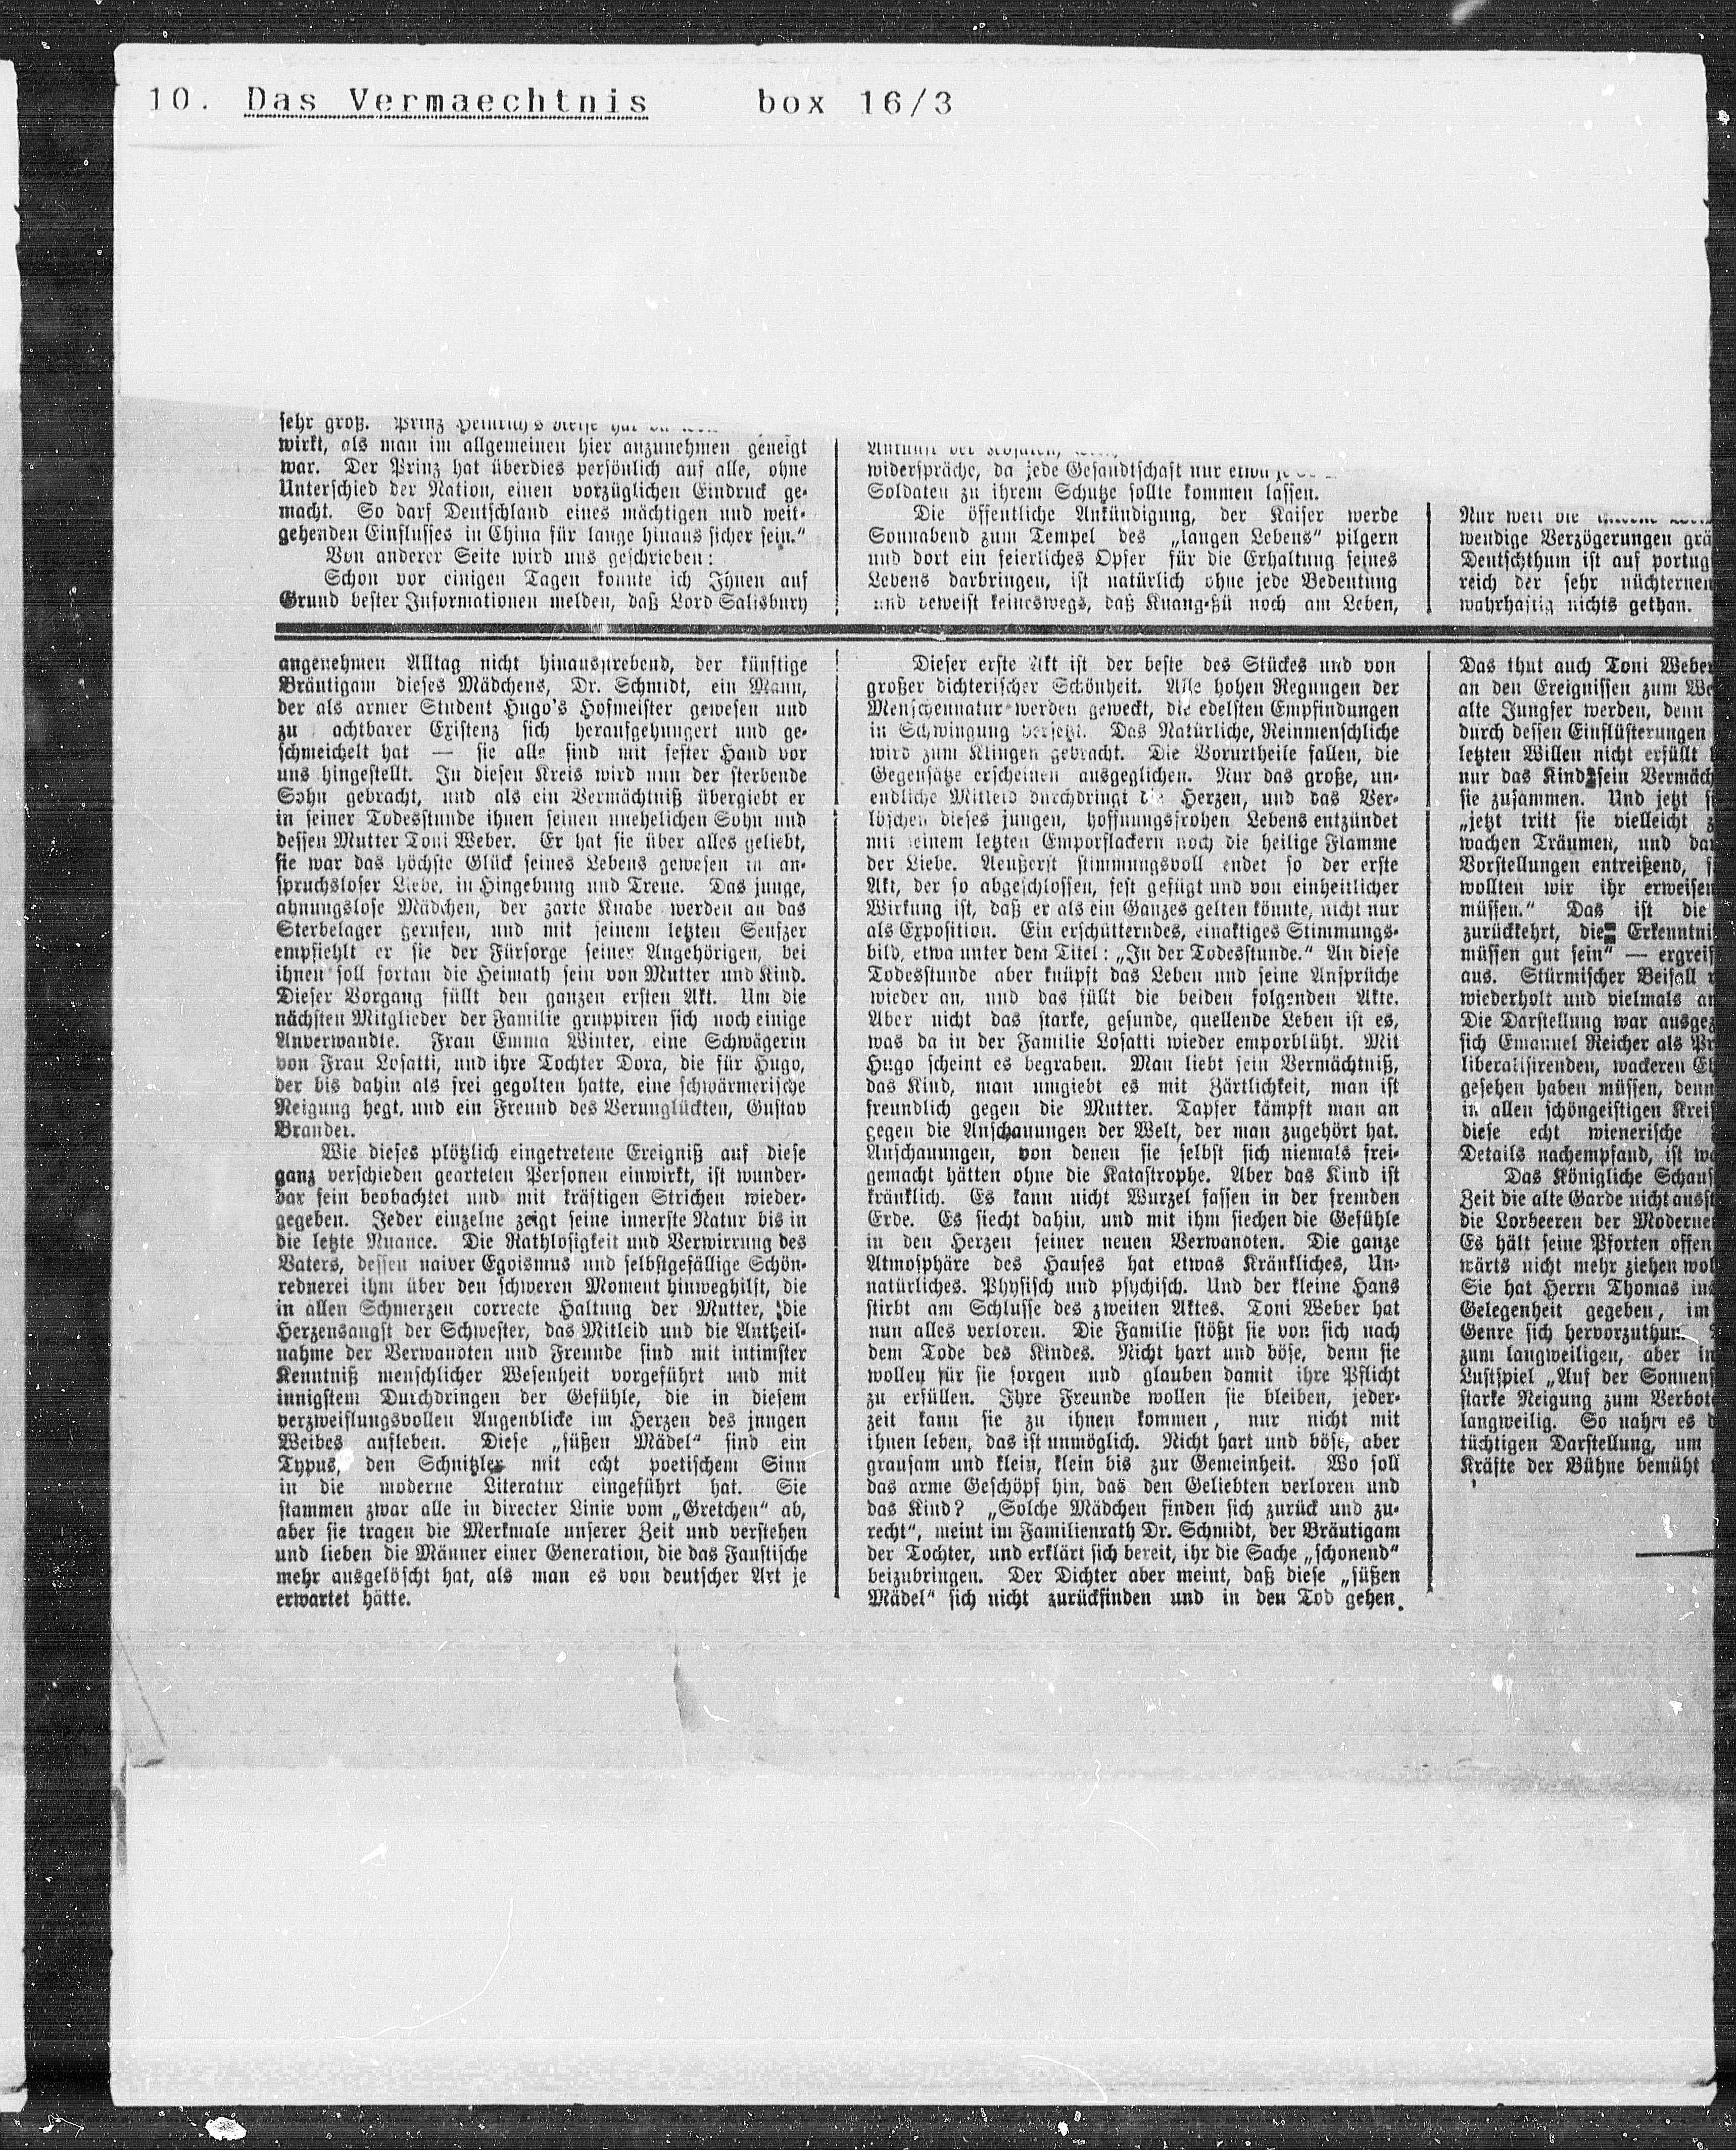 10. Das Vermaechtnis box 16/3
sehr groß. Prinz
wirkt, als man im allgemeinen hier anzunehmen geneigt
war. Der Prinz hat überdies persönlich auf alle, ohne
Unterschied der Nation, einen vorzüglichen Eindruck ge-
macht. So darf Deutschland eines mächtigen und weit-
gehenden Einflusses in China für lange hinaus sicher sein.“
Von anderer Seite wird uns geschrieben:
Schon vor einigen Tagen konnte ich Ihnen auf
Grund bester Informationen melden, daß Lord Salisbury
widerspräche, da jede Gesandtschaft nur etwa
Soldaten zu ihrem Schutze sollte kommen lassen.
Die öffentliche Ankündigung, der Kaiser werde
Sonnabend zum Tempel des „langen Lebens“ pilgern
und dort ein feierliches Opfer für die Erhaltung seines
Lebens darbringen, ist natürlich ohne jede Bedeutung
und beweist keineswegs, daß Kuang-ßü noch am Leben,
Nur weil die
wendige Verzögerungen grä
Deutschthum ist auf portug
reich der sehr nüchternen
wahrhaftig nichts gethan.
angenehmen Alltag nicht hinausstrebend, der künftige
Bräutigam dieses Mädchens, Dr. Schmidt, ein Mann,
der als armer Student Hugo's Hofmeister gewesen und
zu achtbarer Existenz sich heraufgehungert und ge-
schmeichelt hat — sie alle sind mit fester Hand vor
uns hingestellt. In diesen Kreis wird nun der sterbende
Sohn gebracht, und als ein Vermächtniß übergiebt er
in seiner Todesstunde ihnen seinen unehelichen Sohn und
dessen Mutter Toni Weber. Er hat sie über alles geliebt,
sie war das höchste Glück seines Lebens gewesen in an-
spruchsloser Liebe, in Hingebung und Treue. Das junge,
ahnungslose Mädchen, der zarte Knabe werden an das
Sterbelager gerufen, und mit seinem letzten Seufzer
empfiehlt er sie der Fürsorge seiner Angehörigen, bei
ihnen soll fortan die Heimath sein von Mutter und Kind.
Dieser Vorgang füllt den ganzen ersten Akt. Um die
nächsten Mitglieder der Familie gruppiren sich noch einige
Anverwandte. Frau Emma Winter, eine Schwägerin
von Frau Losatti, und ihre Tochter Dora, die für Hugo,
der bis dahin als frei gegolten hatte, eine schwärmerische
Neigung hegt, und ein Freund des Verunglückten, Gustav
Brander.
Wie dieses plötzlich eingetretene Ereigniß auf diese
ganz verschieden gearteten Personen einwirkt, ist wunder-
bar fein beobachtet und mit kräftigen Strichen wieder-
gegeben. Jeder einzelne zeigt seine innerste Natur bis in
die letzte Nuance. Die Rathlosigkeit und Verwirrung des
Vaters, dessen naiver Egoismus und selbstgefällige Schön-
rednerei ihm über den schweren Moment hinweghilft, die
in allen Schmerzen correcte Haltung der Mutter, die
Herzensangst der Schwester, das Mitleid und die Antheil-
nahme der Verwandten und Freunde sind mit intimster
Kenntniß menschlicher Wesenheit vorgeführt und mit
innigstem Durchdringen der Gefühle, die in diesem
verzweiflungsvollen Augenblicke im Herzen des jungen
Weibes aufleben. Diese „süßen Mädel“ sind ein
Typus, den Schnitzler mit echt poetischem Sinn
in die moderne Literatur eingeführt hat. Sie
stammen zwar alle in directer Linie vom „Gretchen“ ab,
aber sie tragen die Merkmale unserer Zeit und verstehen
und lieben die Männer einer Generation, die das Faustische
mehr ausgelöscht hat, als man es von deutscher Art je
erwartet hätte.
Dieser erste Akt ist der beste des Stückes und von
großer dichterischer Schönheit. Alle hohen Regungen der
Menschennatur werden geweckt, die edelsten Empfindungen
in Schwingung versetzt. Das Natürliche, Reinmenschliche
wird zum Klingen gebracht. Die Vorurtheile fallen, die
Gegensätze erscheinen ausgeglichen. Nur das große, un-
endliche Mitleid durchdringt die Herzen, und das Ver-
löschen dieses jungen, hoffnungsfrohen Lebens entzündet
mit seinem letzten Emporflackern noch die heilige Flamme
der Liebe. Aeußerst stimmungsvoll endet so der erste
Akt, der so abgeschlossen, fest gefügt und von einheitlicher
Wirkung ist, daß er als ein Ganzes gelten könnte, nicht nur
als Exposition. Ein erschütterndes, einaktiges Stimmungs-
bild, etwa unter dem Titel: „In der Todesstunde.“ An diese
Todesstunde aber knüpft das Leben und seine Ansprüche
wieder an, und das füllt die beiden folgenden Akte.
Aber nicht das starke, gesunde, quellende Leben ist es,
was da in der Familie Losatti wieder emporblüht. Mit
Hugo scheint es begraben. Man liebt sein Vermächtniß,
das Kind, man umgiebt es mit Zärtlichkeit, man ist
freundlich gegen die Mutter. Tapfer kämpft man an
gegen die Anschauungen der Welt, der man zugehört hat.
Anschauungen, von denen sie selbst sich niemals frei-
gemacht hätten ohne die Katastrophe. Aber das Kind ist
kränklich. Es kann nicht Wurzel fassen in der fremden
Erde. Es siecht dahin, und mit ihm siechen die Gefühle
in den Herzen seiner neuen Verwandten. Die ganze
Atmosphäre des Hauses hat etwas Kränkliches, Un-
natürliches. Physisch und psychisch. Und der kleine Hans
stirbt am Schlusse des zweiten Aktes. Toni Weber hat
nun alles verloren. Die Familie stößt sie von sich nach
dem Tode des Kindes. Nicht hart und böse, denn sie
wollen für sie sorgen und glauben damit ihre Pflicht
zu erfüllen. Ihre Freunde wollen sie bleiben, jeder-
zeit kann sie zu ihnen kommen, nur nicht mit
ihnen leben, das ist unmöglich. Nicht hart und böse, aber
grausam und klein, klein bis zur Gemeinheit. Wo soll
das arme Geschöpf hin, das den Geliebten verloren und
das Kind? „Solche Mädchen finden sich zurück und zu-
recht“, meint im Familienrath Dr. Schmidt, der Bräutigam
der Tochter, und erklärt sich bereit, ihr die Sache „schonend“
beizubringen. Der Dichter aber meint, daß diese „süßen
Mädel“ sich nicht zurückfinden und in den Tod gehen.
Das thut auch Toni Weber
an den Ereignissen zum We
alte Jungfer werden, denn
durch dessen Einflüsterungen
letzten Willen nicht erfüllt
nur das Kind sein Vermäch
sie zusammen. Und jetzt si
„jetzt tritt sie vielleicht z
wachen Träumen, und dan
Vorstellungen entreißend, s
wollten wir ihr erweisen
müssen.“ Das ist die
zurückkehrt, die Erkenntni
müssen gut sein“ — ergreif
aus. Stürmischer Beifall r
wiederholt und vielmals an
Die Darstellung war ausgez
sich Emanuel Reicher als Pr
liberalisirenden, wackeren Eh
gesehen haben müssen, denn
in allen schöngeistigen Kreis
diese echt wienerische
Details nachempfand, ist wa
Das Königliche Schaus
Zeit die alte Garde nicht ausst
die Lorbeeren der Modernen
Es hält seine Pforten offen
wärts nicht mehr ziehen wol
Sie hat Herrn Thomas ins
Gelegenheit gegeben, im
Genre sich hervorzuthun.
zum langweiligen, aber in
Lustspiel „Auf der Sonnens
starke Neigung zum Verbote
langweilig. So nahm es d
tüchtigen Darstellung, um
Kräfte der Bühne bemüht